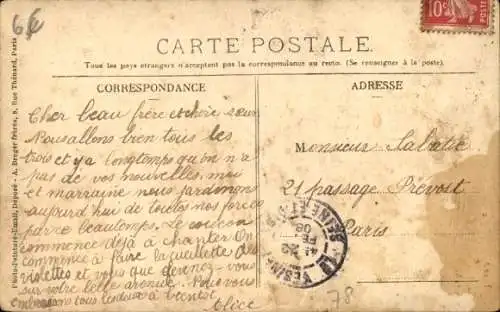 6€
10c
POSTES
CARTE POSTALE.
Tous les pays etrangers n'acceptent pas la correspondance au recto. (Se renseignes à la poste).
CORRESPONDANCE
ADRESSE
Photo-Peinture-Émail, Déposé - A. Breger frères, 9, Rue Thénard, Paris
Cher beau frère et chère sœur
Nous allons bien tous les
trois et y a longtemps qu'on n'a
pas de vos nouvelles, moi
et marraine nous jardinons
aujourd'hui de toutes nos forces
par ce beau temps. Le coucou
commence déjà à chanter On
commence à faire la cueillette des
violettes et vous que devenez-vous
sur votre belle avenue. Nous vous
embrassons tous les deux à bientôt
Alice
Monsieur Sabatié
21 passage Prévost
Paris
SEINE ET
FE
08
78